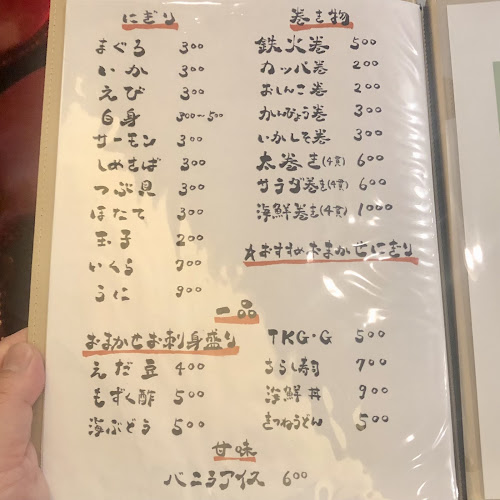 にぎり
まぐろ 300
いか 300
えび 300
白身 300～500
サーモン 300
しめさば 300
つぶ貝 300
ほたて 300
玉子 200
いくら 700
うに 900
巻き物
鉄火巻 500
カッパ巻 200
おしんこ巻 200
かんぴょう巻 300
いかしそ巻 300
太巻き(4貫) 600
サラダ巻き(4貫) 600
海鮮巻き(4貫) 1000
★おすすめおまかせにぎり
一品
おまかせお刺身盛り
えだ豆 400
もずく酢 500
海ぶどう 500
TKG・G 500
ちらし寿司 700
海鮮丼 900
きつねうどん 500
甘味
バニラアイス 600